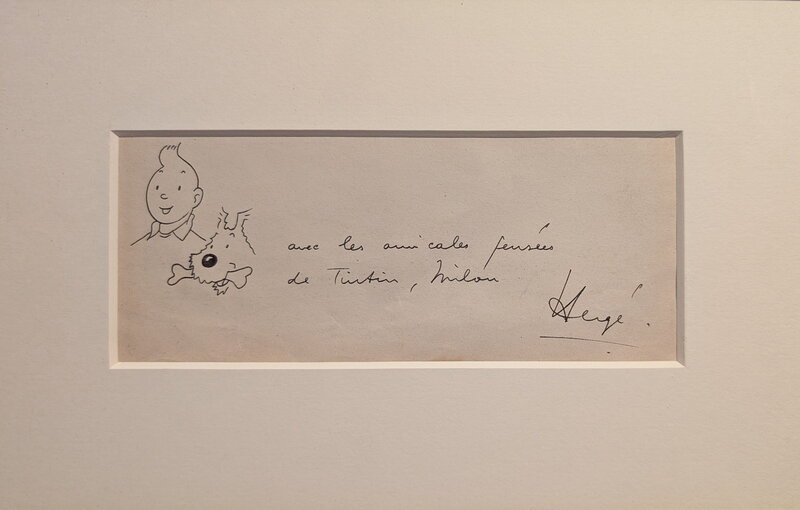 avec les amicales pensées
de Tintin, Milou
Hergé.